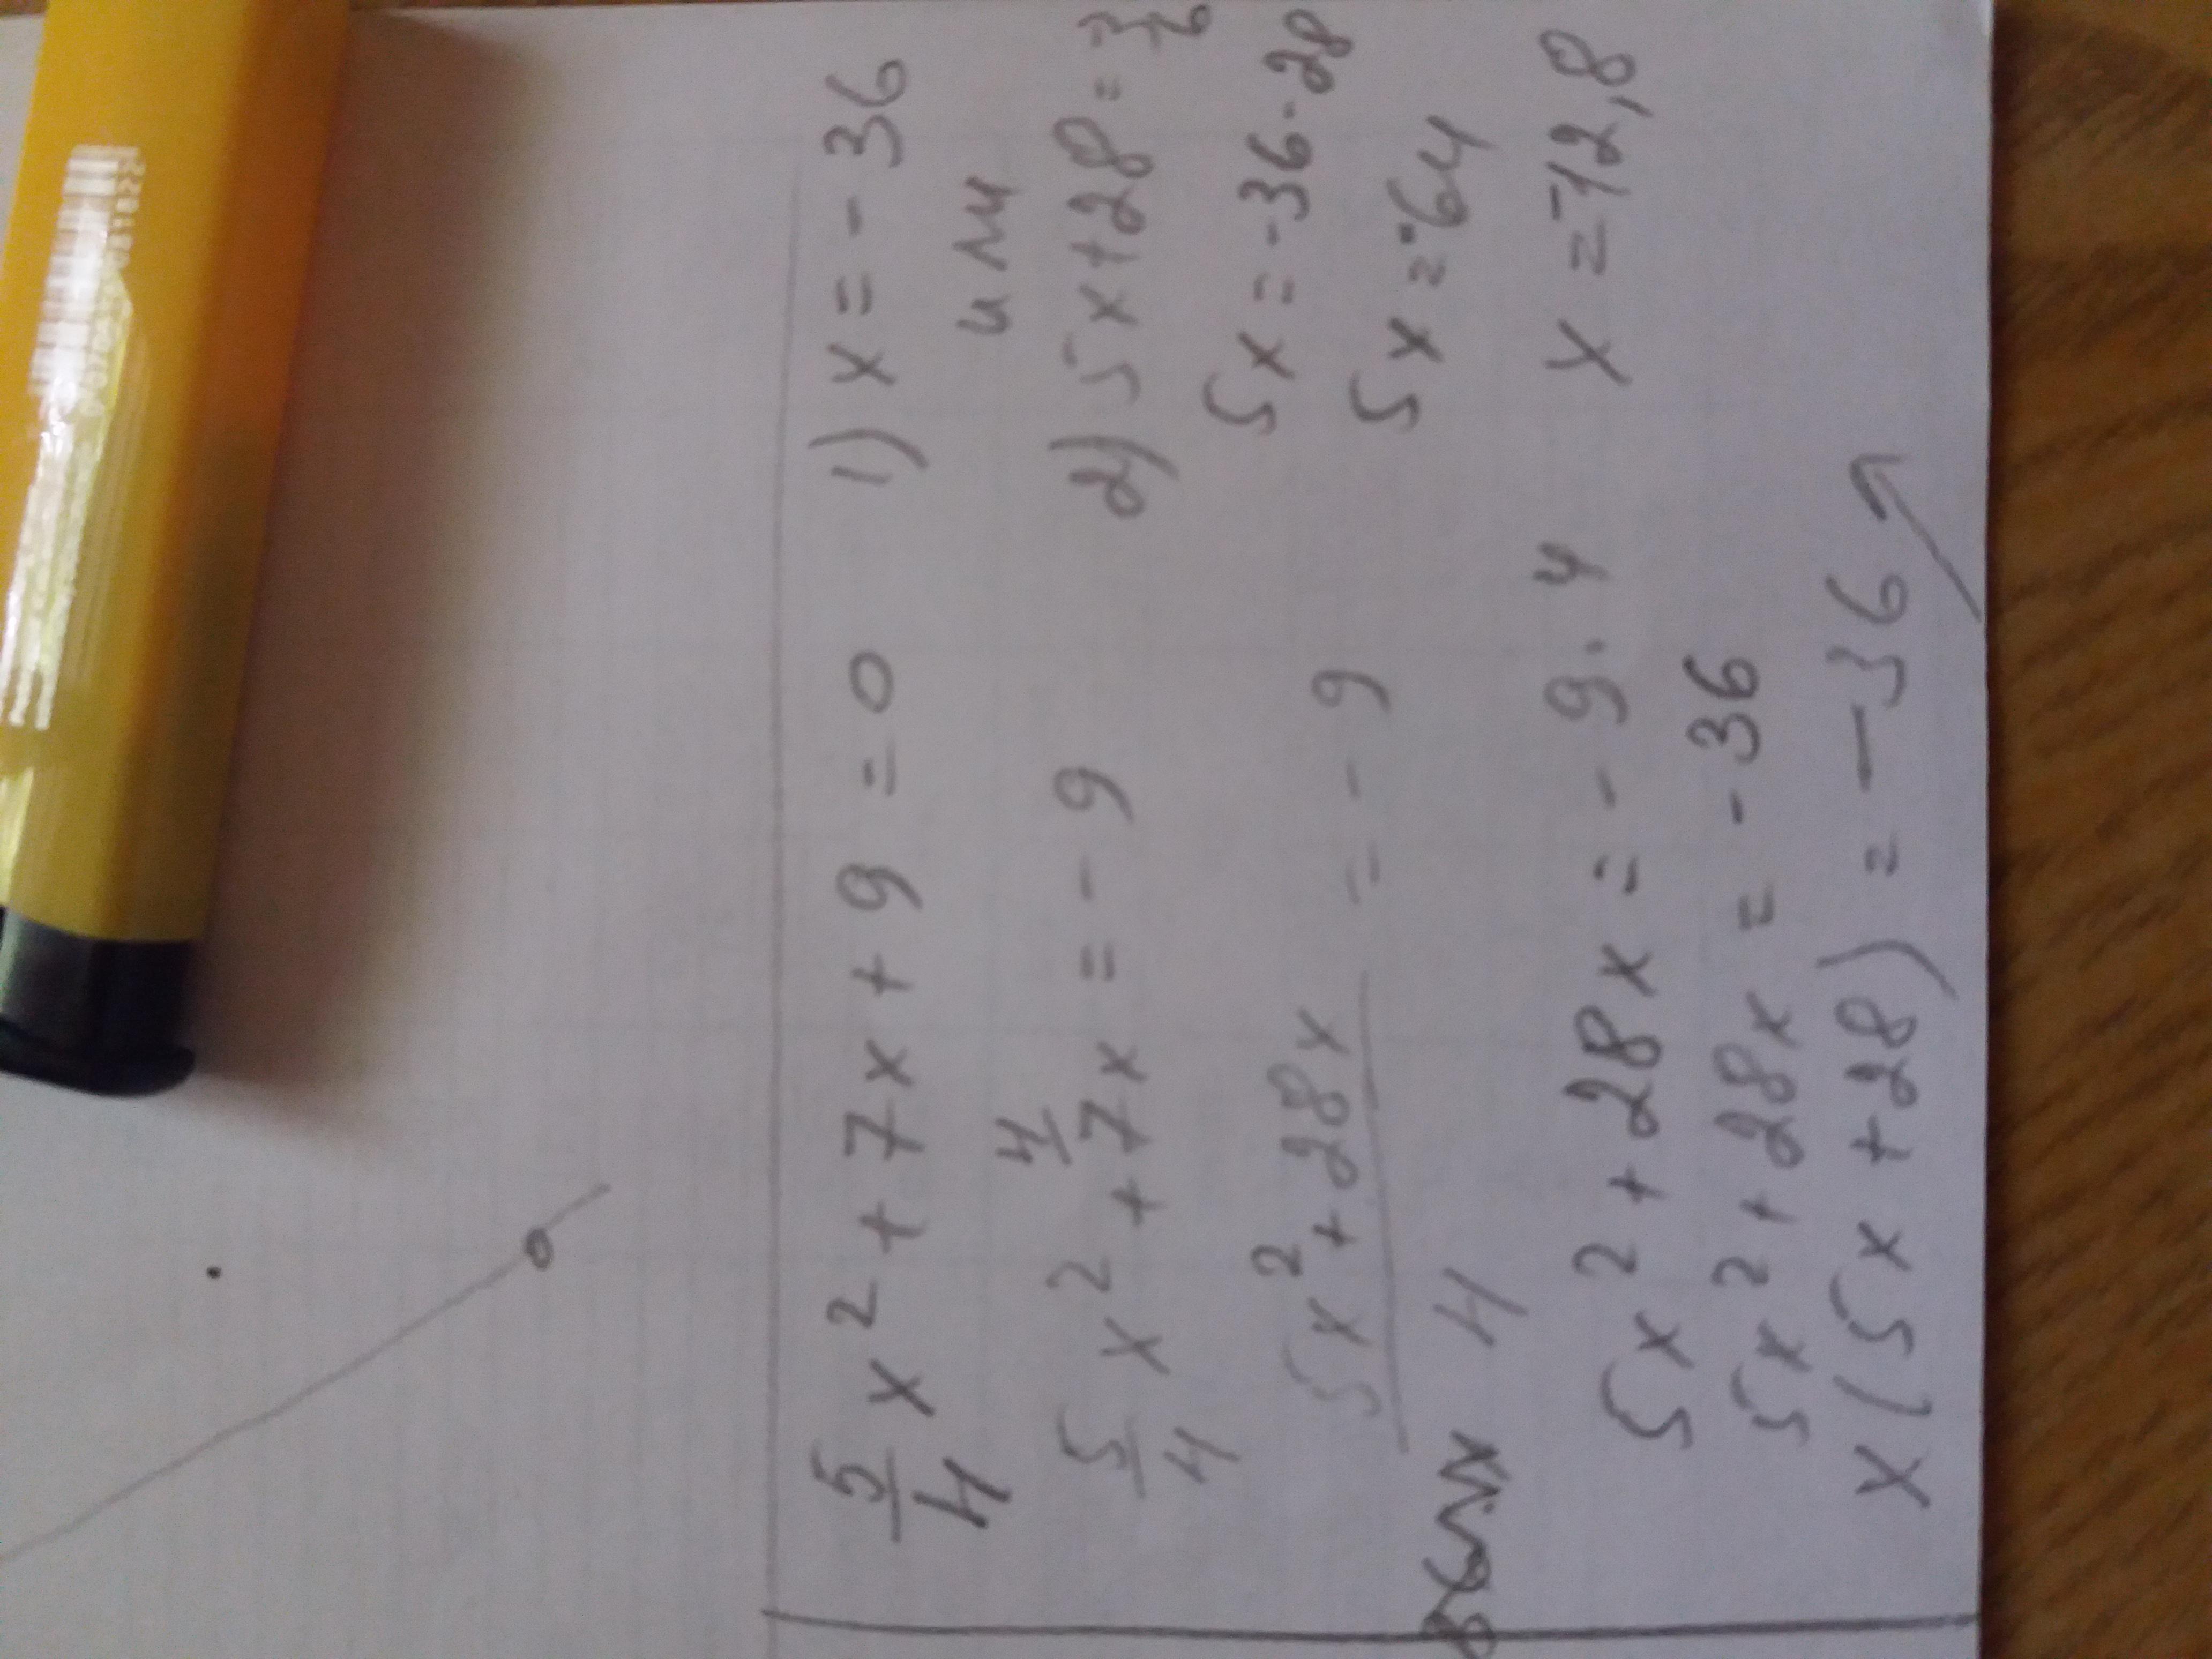 5/4 x² + 7x + 9 = 0
5/4 x² + 7x = - 9
4
5x² + 28x / 4 = - 9
5x² + 28x = - 9 · 4
5x² + 28x = - 36
x(5x + 28) = - 36
1) x = - 36
или
2) 5x + 28 = -36
5x = -36 - 28
5x = -64
x = -12,8